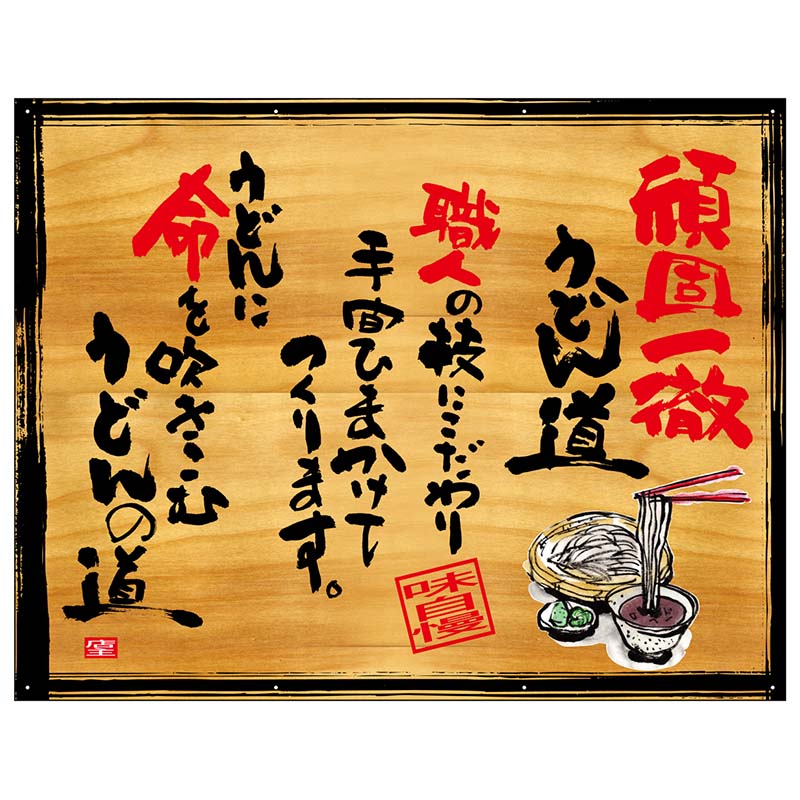 頑固一徹
うどん道
職人の技にこだわり
手間ひまかけて
つくります。
味自慢
うどんに
命を吹きこむ
うどんの道
店主